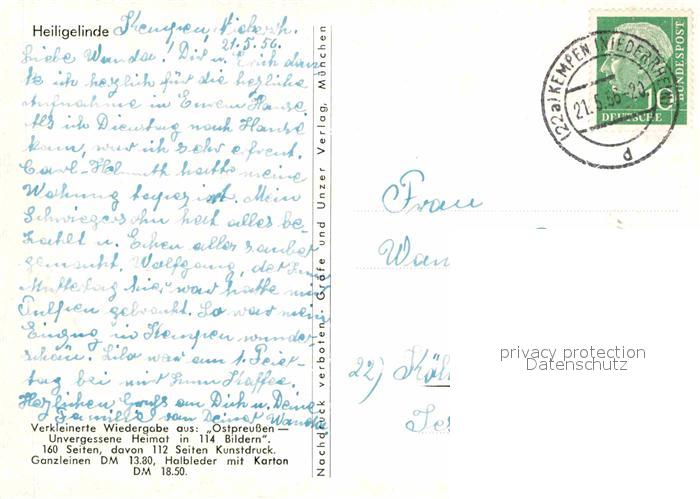 Heiligelinde
Kempen, Niederrh.
21.5.56.
Liebe Wanda! Dir u. Erich dan-
ke ich herzlich für die herzliche
Aufnahme in Eurem Hause.
Als ich Dienstag nach Hause
kam, war ich sehr erfreut.
Carl-Helmuth hatte meine
Wohnung tapeziert. Mein
Schwiegersohn hat alles be-
zahlt u. Echen alles sauber
gemacht. Wolfgang, der zum
Muttertag hier war hatte mir
Tulpen gebracht. So war mein
Einzug in Kempen wunder-
schön. Lilo war am 1. Feier-
tag bei mir zum Kaffee.
Herzlichen Gruß an Dich u. Deine
Familie von Deiner Wanda
Verkleinerte Wiedergabe aus: „Ostpreußen —
Unvergessene Heimat in 114 Bildern".
160 Seiten, davon 112 Seiten Kunstdruck.
Ganzleinen DM 13.80, Halbleder mit Karton
DM 18.50.
Nachdruck verboten. Gräfe und Unzer Verlag, München
(22a) KEMPEN (NIEDERRHEIN)
21.5.56-20
d
10
DEUTSCHE
BUNDESPOST
Frau
Wan
22) Köl
privacy protection
Datenschutz